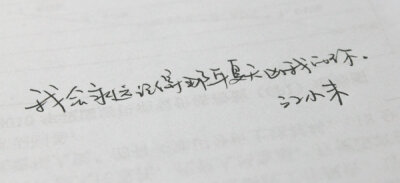 我会永远记得那年夏天的我和你.
江小未